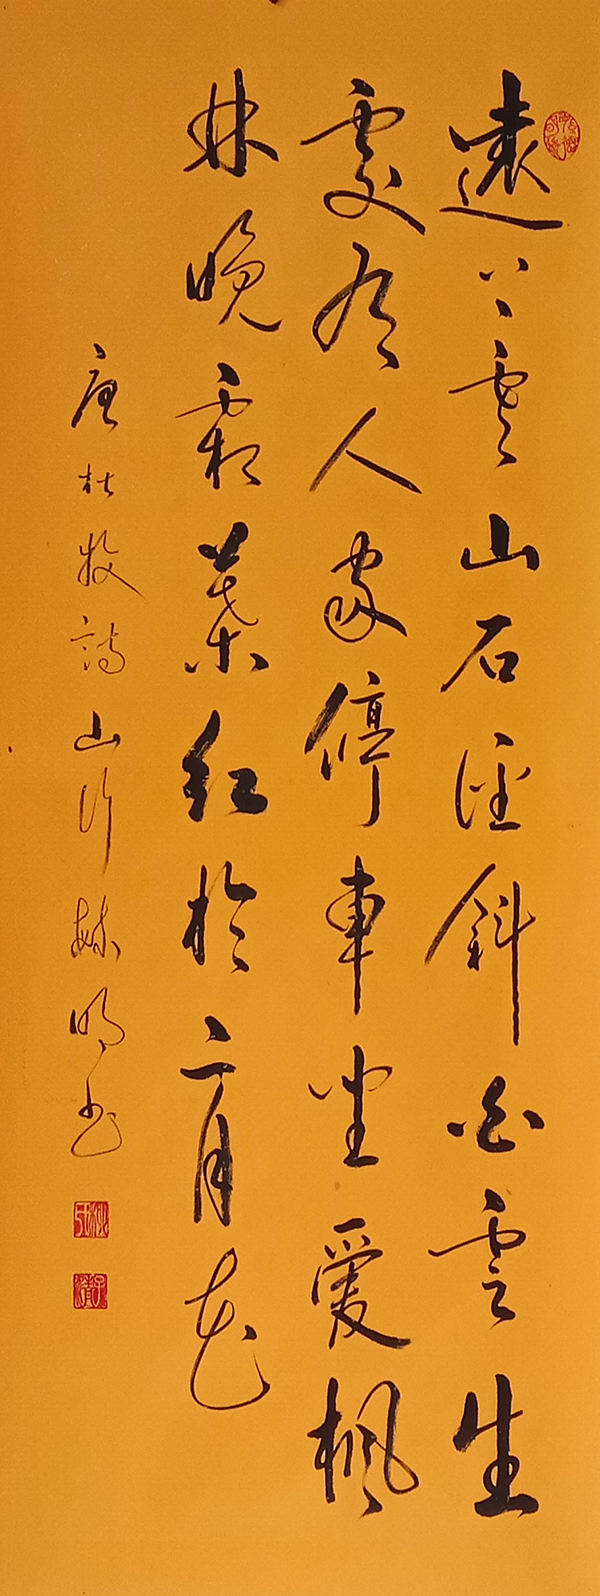 遠上寒山石徑斜白雲生
處有人家停車坐愛楓
林晚霜葉紅於二月花
唐杜牧詩山行明書